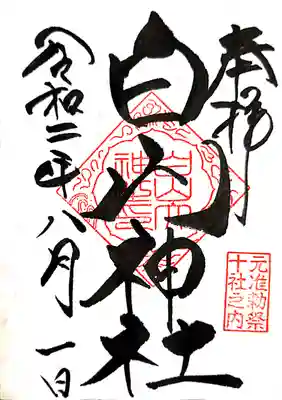 奉拝
白山神社
元准勅祭
十社之内
令和二年八月一日